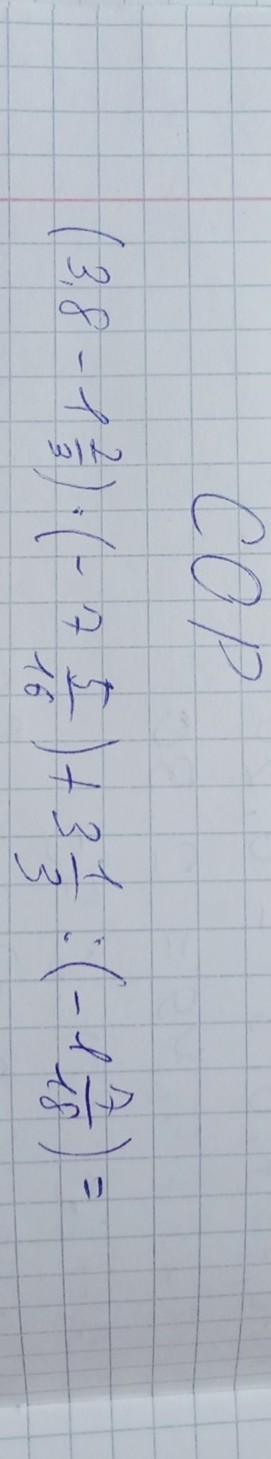 СОР
(3,8 - 1 2/3) · (- 7 5/16) + 3 1/3 : (- 1 7/18) =